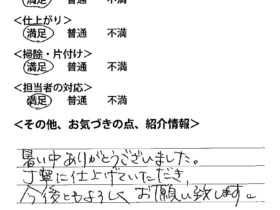 満足 普通 不満
<仕上がり>
満足 普通 不満
<掃除・片付け>
満足 普通 不満
<担当者の対応>
満足 普通 不満
<その他、お気づきの点、紹介情報>
暑い中ありがとうございました。
丁寧に仕上げていただき、
今後ともよろしくお願い致します。